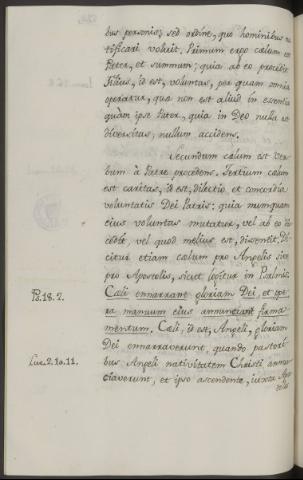 bus personis; sed ordine, quo hominibus no
tificari voluit. Primum ergo cælum est
Pater, et summum; quia ab eo procedit
Filius, id est, voluntas, per quam omnia
operatur, qua non est aliud in essentia
quàm ipse Pater, quia in Deo nulla est
diversitas, nullum accidens.
Secundum cælum est Ver
bum à Patre procedens. Tertium cælum
est caritas, id est, dilectio et concordia
voluntatis Dei Patris: quia nunquam
eius voluntas mutatur, vel ab eo di
cedit vel quod melius est, dissentit. Di
citur etiam cælum pro Angelis sive
pro Apostolis, sicut legitur in Psalmis:
Ps. 18. 2. Cæli enarrant gloriam Dei, et ope
ra manuum eius annunciant firma
mentum. Cæli, id est, Angeli, gloriam
Dei ennarraverunt, quando pastori
Luc. 2. 10. 11. bus Angeli nativitatem Christi annun
ciaverunt, et ipso ascendente, iuxta